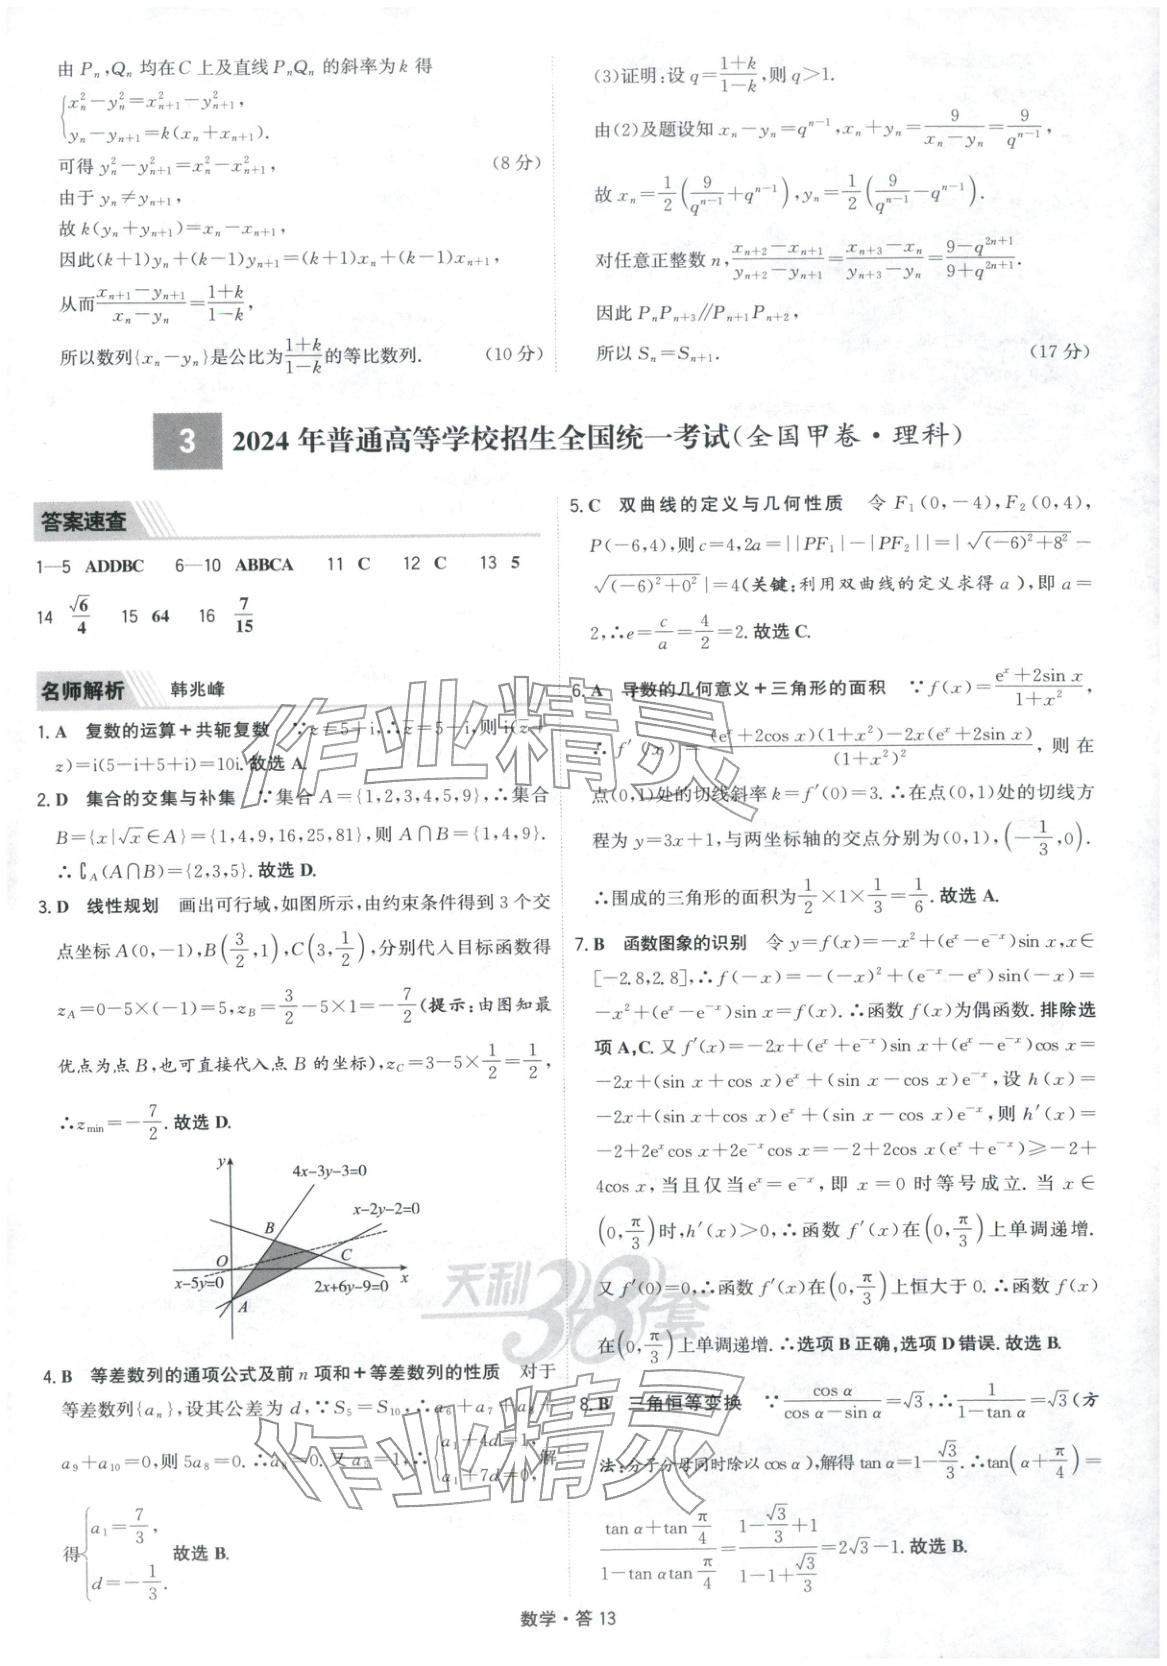 由 Pₙ,Qₙ 均在C 上及直线PₙQₙ 的斜率为k 得
{xₙ²−yₙ²=xₙ₊₁²−yₙ₊₁²,
yₙ−yₙ₊₁=k(xₙ+xₙ₊₁).
可得 yₙ²−yₙ₊₁²=xₙ²−xₙ₊₁², (8 分)
由于 yₙ≠yₙ₊₁,
故 k(yₙ+yₙ₊₁)=xₙ−xₙ₊₁,
因此(k+1)yₙ+(k−1)yₙ₊₁=(k+1)xₙ+(k−1)xₙ₊₁,
从而(xₙ₊₁−yₙ₊₁)/(xₙ−yₙ)=(1+k)/(1−k),
所以数列{xₙ−yₙ}是公比为(1+k)/(1−k)的等比数列. (10 分)
(3)证明:设 q=(1+k)/(1−k),则 q>1.
由(2)及题设知 xₙ−yₙ=qⁿ⁻¹,xₙ+yₙ=9/(xₙ−yₙ)=9/qⁿ⁻¹,
故 xₙ=1/2(9/qⁿ⁻¹+qⁿ⁻¹),yₙ=1/2(9/qⁿ⁻¹−qⁿ⁻¹).
对任意正整数 n,(xₙ₊₂−xₙ₊₁)/(yₙ₊₂−yₙ₊₁)=(xₙ₊₃−xₙ)/(yₙ₊₃−yₙ)=(9−q²ⁿ⁺¹)/(9+q²ⁿ⁺¹).
因此 PₙPₙ₊₃∥Pₙ₊₁Pₙ₊₂,
所以 Sₙ=Sₙ₊₁. (17 分)
3 2024 年普通高等学校招生全国统一考试(全国甲卷·理科)
答案速查
1—5 ADDBC 6—10 ABBCA 11 C 12 C 13 5
14 √6/4 15 64 16 7/15
名师解析 韩兆峰
1. A 复数的运算+共轭复数 ∵z=5+i,∴z̄=5−i,则 i(z̄+
z)=i(5−i+5+i)=10i.故选 A.
2. D 集合的交集与补集 ∵集合 A={1,2,3,4,5,9},∴集合
B={x|√x∈A}={1,4,9,16,25,81},则 A∩B={1,4,9}.
∴∁A(A∩B)={2,3,5}.故选 D.
3. D 线性规划 画出可行域,如图所示,由约束条件得到 3 个交
点坐标 A(0,−1),B(3/2,1),C(3,1/2),分别代入目标函数得
z_A=0−5×(−1)=5,z_B=3/2−5×1=−7/2(提示:由图知最
优点为点 B,也可直接代入点 B 的坐标),z_C=3−5×1/2=1/2,
∴z_min=−7/2.故选 D.
y 4x−3y−3=0
x−2y−2=0
B
O C
x−5y=0 2x+6y−9=0 x
A
4. B 等差数列的通项公式及前 n 项和+等差数列的性质 对于
等差数列{aₙ},设其公差为 d,∵S₅=S₁₀,∴a₆+a₇+a₈+
a₉+a₁₀=0,则 5a₈=0.∴a₈=0.又 a₅=1,∴{a₁+4d=1, a₁+7d=0, 解
得{a₁=7/3, d=−1/3. 故选 B.
5. C 双曲线的定义与几何性质 令 F₁(0,−4),F₂(0,4),
P(−6,4),则 c=4,2a=||PF₁|−|PF₂||=|√((−6)²+8²)−
√((−6)²+0²)|=4(关键:利用双曲线的定义求得 a),即 a=
2,∴e=c/a=4/2=2.故选 C.
6. A 导数的几何意义+三角形的面积 ∵f(x)=(eˣ+2sin x)/(1+x²),
∴f′(x)=((eˣ+2cos x)(1+x²)−2x(eˣ+2sin x))/(1+x²)²,则在
点(0,1)处的切线斜率 k=f′(0)=3.∴在点(0,1)处的切线方
程为 y=3x+1,与两坐标轴的交点分别为(0,1),(−1/3,0).
∴围成的三角形的面积为1/2×1×1/3=1/6.故选 A.
7. B 函数图象的识别 令 y=f(x)=−x²+(eˣ−e⁻ˣ)sin x,x∈
[−2.8,2.8],∴f(−x)=−(−x)²+(e⁻ˣ−eˣ)sin(−x)=
−x²+(eˣ−e⁻ˣ)sin x=f(x).∴函数 f(x)为偶函数.排除选
项 A,C.又 f′(x)=−2x+(eˣ+e⁻ˣ)sin x+(eˣ−e⁻ˣ)cos x=
−2x+(sin x+cos x)eˣ+(sin x−cos x)e⁻ˣ,设 h(x)=
−2x+(sin x+cos x)eˣ+(sin x−cos x)e⁻ˣ,则 h′(x)=
−2+2eˣcos x+2e⁻ˣcos x=−2+2cos x(eˣ+e⁻ˣ)≥−2+
4cos x,当且仅当 eˣ=e⁻ˣ,即 x=0 时等号成立.当 x∈
(0,π/3)时,h′(x)>0,∴函数 f′(x)在(0,π/3)上单调递增.
又 f′(0)=0,∴函数 f′(x)在(0,π/3)上恒大于 0.∴函数 f(x)
在(0,π/3)上单调递增.∴选项 B 正确,选项 D 错误.故选 B.
8. B 三角恒等变换 ∵cos α/(cos α−sin α)=√3,∴1/(1−tan α)=√3(方
法:分子分母同时除以 cos α),解得 tan α=1−√3/3.∴tan(α+π/4)=
(tan α+tan π/4)/(1−tan αtan π/4)=(1−√3/3+1)/(1−1+√3/3)=2√3−1.故选 B.
天利38套
作业精灵
作业精灵
数学·答 13